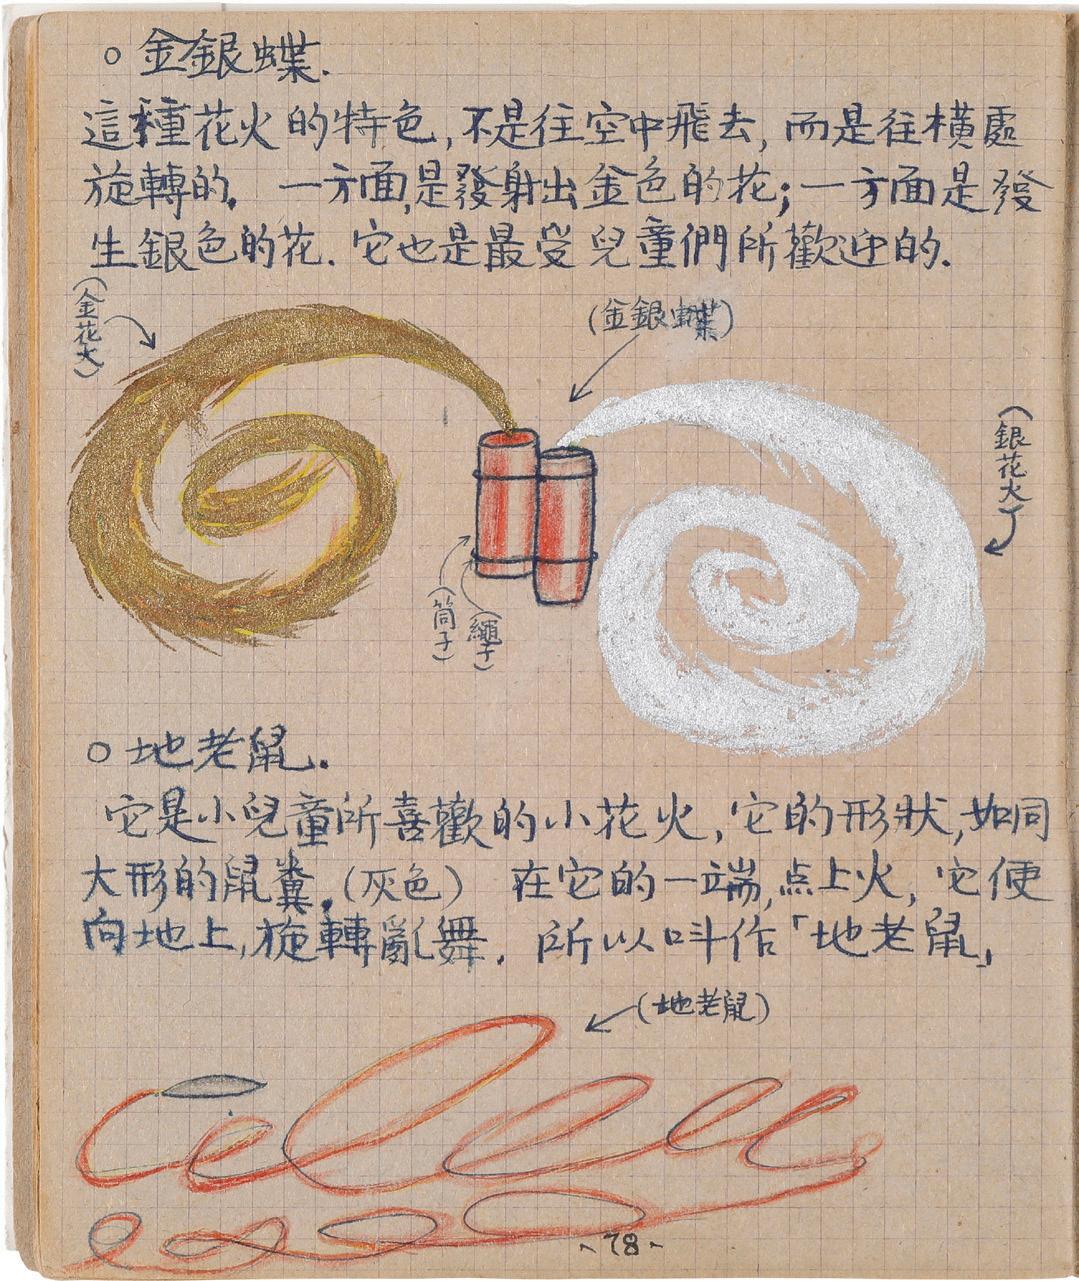 ○金銀蝶.
這種花火的特色,不是往空中飛去,而是往橫處
旋轉的。一方面,是發射出金色的花;一方面是發
生銀色的花.它也是最受兒童們所歡迎的.
(金花火)
(金銀蝶)
(銀花火)
(筒子)
(繩子)
○地老鼠.
它是小兒童所喜歡的小花火,它的形狀,如同
大形的鼠糞。(灰色) 在它的一端,点上火,它便
向地上,旋轉亂舞. 所以叫作「地老鼠」
(地老鼠)
-78-